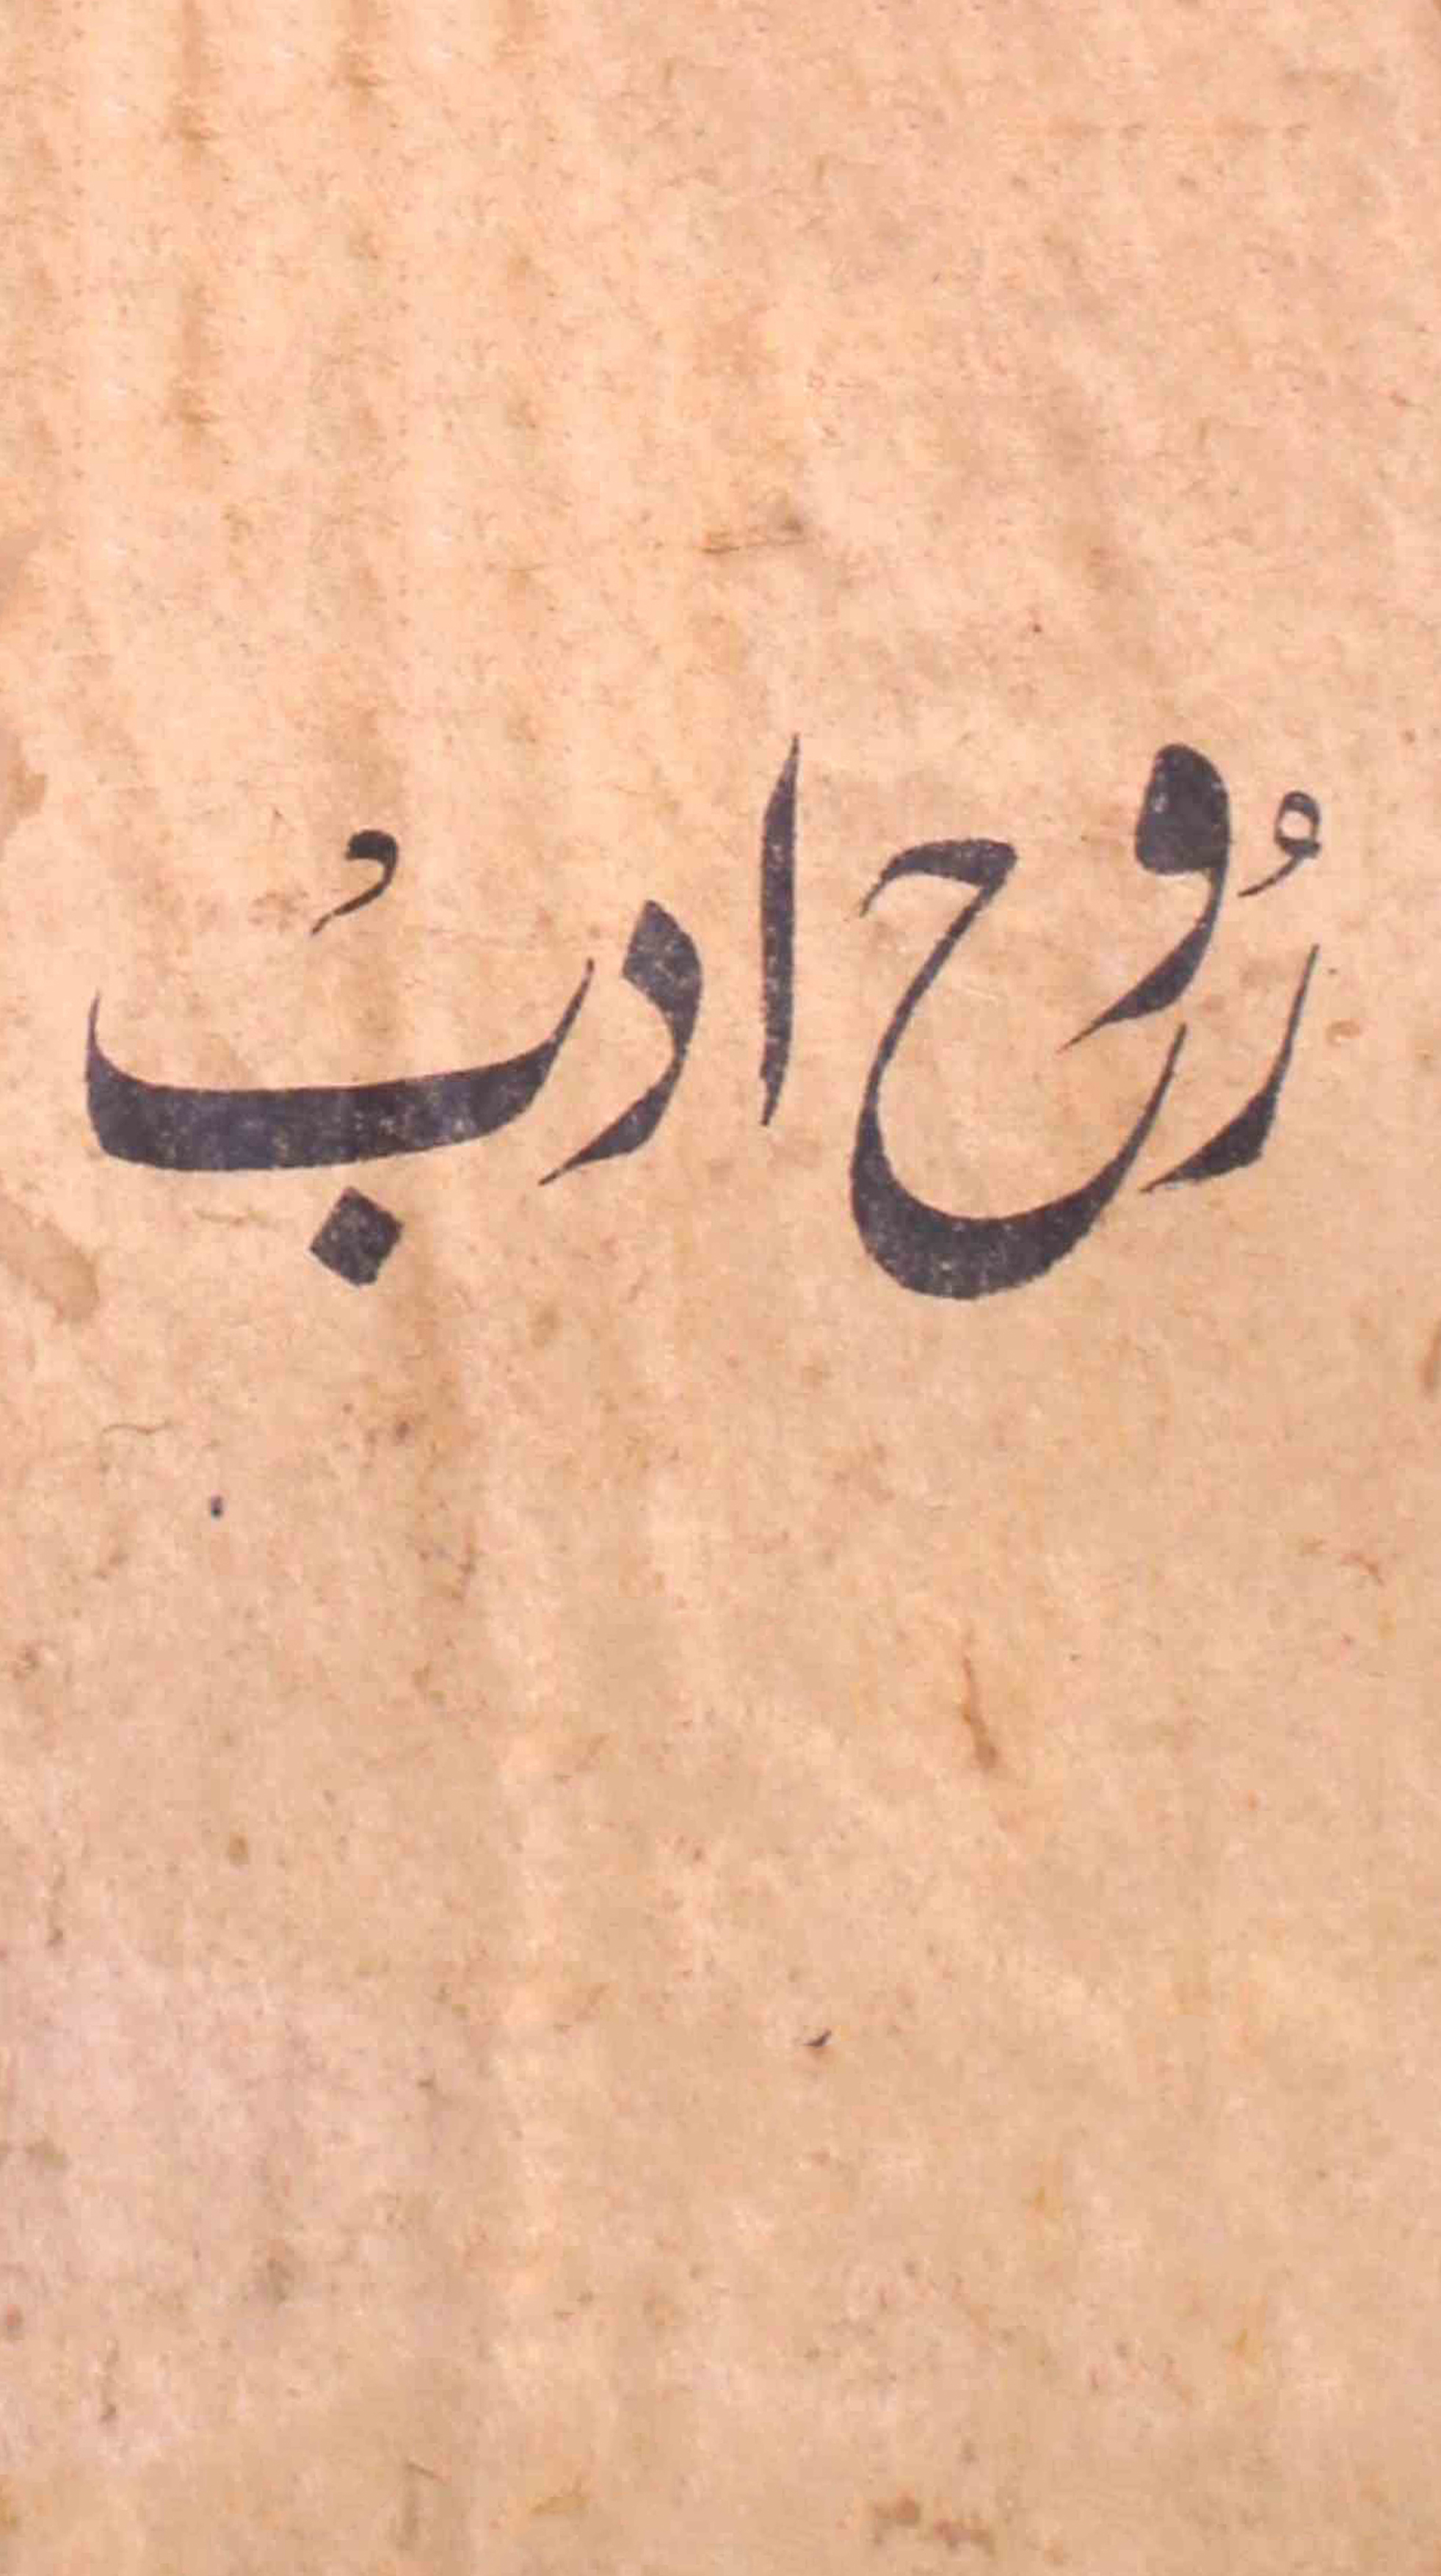 رُوح ادبُ